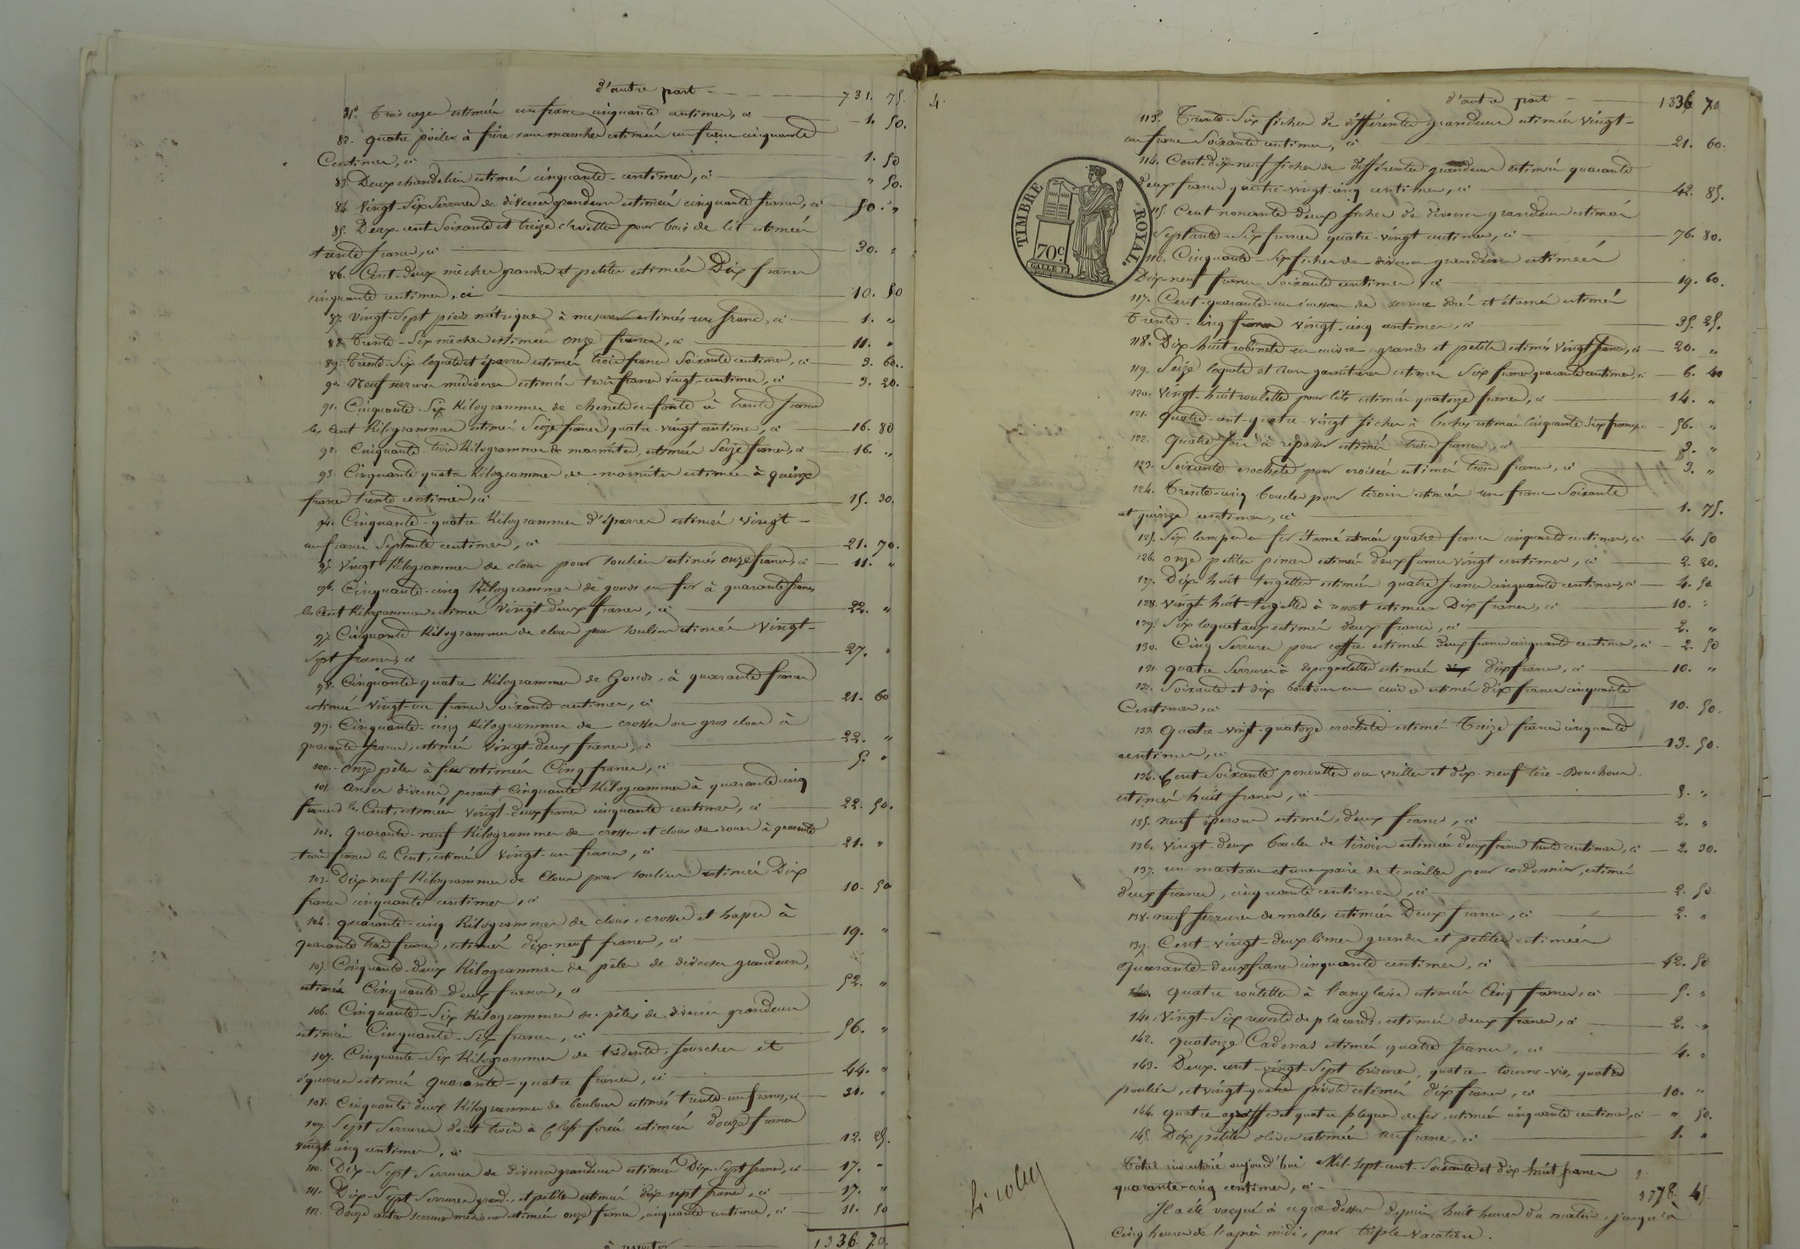 d'autre part 731. 75.
81. Trois cage estimées un franc cinquante centimes, ci 1. 50.
82. quatre poëles à frire sans manches estimées un franc cinquante
Centimes, ci 1. 50
83. Deux chandeliers estimés cinquante centimes, ci " 50.
84. Vingt-Six Serrures de diverses grandeurs estimées cinquante francs, ci 50. "
85. Deux cent Soixante et treize chevilles pour bois de lit estimées
trente francs, ci 30. "
86. Cent-deux mèches grandes et petites estimées Dix francs
cinquante centimes, ci 10. 50
87. Vingt-Sept pieds métriques à mesurer estimés un franc, ci 1. "
88. Trente-Six mèches estimées onze francs, ci 11. "
89. Trente-Six loquets et éparres estimés trois francs Soixante centimes, ci 3. 60.
90. Neuf serrures médiocres estimées trois francs vingt centimes, ci 3. 20.
91. Cinquante-Six Kilogrammes de chenets en fonte à trente francs
les Cent Kilogrammes estimés Seize francs quatre-vingt centimes, ci 16. 80
92. Cinquante trois Kilogrammes de marmites, estimées Seize francs, ci 16. "
93. Cinquante quatre Kilogrammes de marmites estimées à quinze
francs trente centimes, ci 15. 30.
94. Cinquante-quatre Kilogrammes d'éparres estimées vingt-
un francs Septante centimes, ci 21. 70.
95. Vingt Kilogrammes de clous pour souliers estimés onze francs, ci 11. "
96. Cinquante-cinq Kilogrammes de gonds en fer à quarante francs
les Cent Kilogrammes estimés vingt deux francs, ci 22. "
97. Cinquante Kilogrammes de clous pour souliers estimés Vingt-
Sept francs, ci 27. "
98. Cinquante quatre Kilogrammes de Gonds, à quarante francs
estimés vingt-un francs Soixante centimes, ci 21. 60
99. Cinquante-cinq Kilogrammes de crosses ou gros clous à
quarante francs, estimés vingt-deux francs, ci 22. "
100. Onze pèles à feu estimées Cinq francs, ci 5. "
101. Anses diverses pesant Cinquante Kilogrammes à quarante cinq
francs le Cent, estimées vingt-deux francs cinquante centimes, ci 22. 50.
102. quarante-neuf Kilogrammes de crosses et clous de roues à quarante
trois francs le Cent, estimés vingt-un francs, ci 21. "
103. Dix neuf Kilogrammes de Clous pour souliers estimés Dix
francs cinquante centimes, ci 10. 50
104. quarante-cinq Kilogrammes de clous, crosses et hapes à
quarante trois francs, estimés dix-neuf francs, ci 19. "
105. Cinquante-deux Kilogrammes de pèles de diverses grandeurs,
estimées Cinquante-deux francs, ci 52. "
106. Cinquante-Six Kilogrammes de pèles de diverses grandeurs
estimées Cinquante-Six francs, ci 56. "
107. Cinquante-Six Kilogrammes de tridents, fourches et
équerres estimés quarante-quatre francs, ci 44. "
108. Cinquante deux Kilogrammes de boulons estimés trente-un francs, ci 31. "
109. Sept Serrures dont trois à Clefs forées estimées douze francs
vingt cinq centimes, ci 12. 25.
110. Dix-Sept Serrures de diverses grandeurs estimées Dix-Sept francs, ci 17. "
111. Dix-Sept Serrures grandes et petites estimées dix-sept francs, ci 17. "
112. Douze autres serrures médiocres estimées onze francs, cinquante centimes, ci 11. 50
à reporter 1336 70.
4.
d'autre part 1336 70
113. Trente-Six fiches de différentes grandeurs estimées vingt-
un francs Soixante centimes, ci 21. 60.
114. Cent dix-neuf fiches de différentes grandeurs estimées quarante
deux francs quatre-vingt cinq centimes, ci 42. 85.
115. Cent nonante deux fiches de diverses grandeurs estimées
Septante-Six francs quatre-vingt centimes, ci 76. 80.
116. Cinquante-Six fiches de diverses grandeurs estimées
Dix-neuf francs Soixante centimes, ci 19. 60.
117. Cent-quarante-un écussons de serrure doré et étamé estimés
Trente-cinq francs vingt-cinq centimes, ci 35. 25.
118. Dix huit robinets en cuivre grands et petits estimés Vingt francs, ci 20. "
119. Seize loquets et leurs garnitures estimés Six francs quarante centimes, ci 6. 40
120. Vingt-huit roulettes pour lits estimées quatorze francs, ci 14. "
121. quatre-cent-quatre-vingt fiches à broches estimées Cinquante Six francs, ci 56. "
122. quatre fers à repasser estimés trois francs, ci 3. "
123. Soixante crochets pour croisées estimés trois francs, ci 3. "
124. Trente-cinq boucles pour tiroirs estimées un franc Soixante
et quinze centimes, ci 1. 75.
125. Six lampes en fer étamé estimées quatre francs cinquante centimes, ci 4. 50
126. onze petites pinces estimées deux francs vingt centimes, ci 2. 20.
127. Dix huit targettes estimées quatre francs cinquante centimes, ci 4. 50.
128. Vingt huit targettes à ressort estimées Dix francs, ci 10. "
129. Six loqueteaux estimés deux francs, ci 2. "
130. Cinq Serrures pour coffre estimées deux francs cinquante centimes, ci 2. 50
131. quatre Serrures à espagnolettes estimées dix francs, ci 10. "
132. Soixante et dix boutons en cuivre estimés dix francs cinquante
Centimes, ci 10. 50.
133. quatre-vingt-quatorze crochets estimés Treize francs cinquante
centimes, ci 13. 50.
134. Cent-Soixante percettes ou vrilles et dix-neuf tire-Bouchons,
estimés huit francs, ci 8. "
135. neuf éperons estimés, deux francs, ci 2. "
136. Vingt-deux boucles de tiroirs estimées deux francs trente centimes, ci 2. 30.
137. un marteau et une paire de tenailles pour cordonnier, estimés
deux francs, cinquante centimes, ci 2. 50.
138. neuf serrures de malles, estimées Deux francs, ci 2. "
139. Cent-vingt-deux limes grandes et petites estimées
Quarante-deux francs cinquante centimes, ci 42. 50
140. quatre roulettes à l'anglaise estimées Cinq francs, ci 5. "
141. Vingt-Six ressorts de placards, estimés deux francs, ci 2. "
142. quatorze Cadenas estimés quatre francs, ci 4. "
143. Deux cent-vingt-Sept brisures, quatre tourne-vis, quatre
poulies, et vingt-quatre pivots estimés dix francs, ci 10. "
144. quatre agraffes et quatre plaques de fer, estimées cinquante centimes, ci " 50.
145. Dix petites olives estimées un franc, ci 1. "
Total inventorié aujourd'hui Mil-Sept-cent-Soixante et dix huit francs
quarante-cinq centimes, ci 1778. 45.
Il a été vacqué à ce que dessus depuis huit heures du matin jusqu'à
Cinq heures de l'après midi, par triple vacation.
TIMBRE ROYAL
70 c.